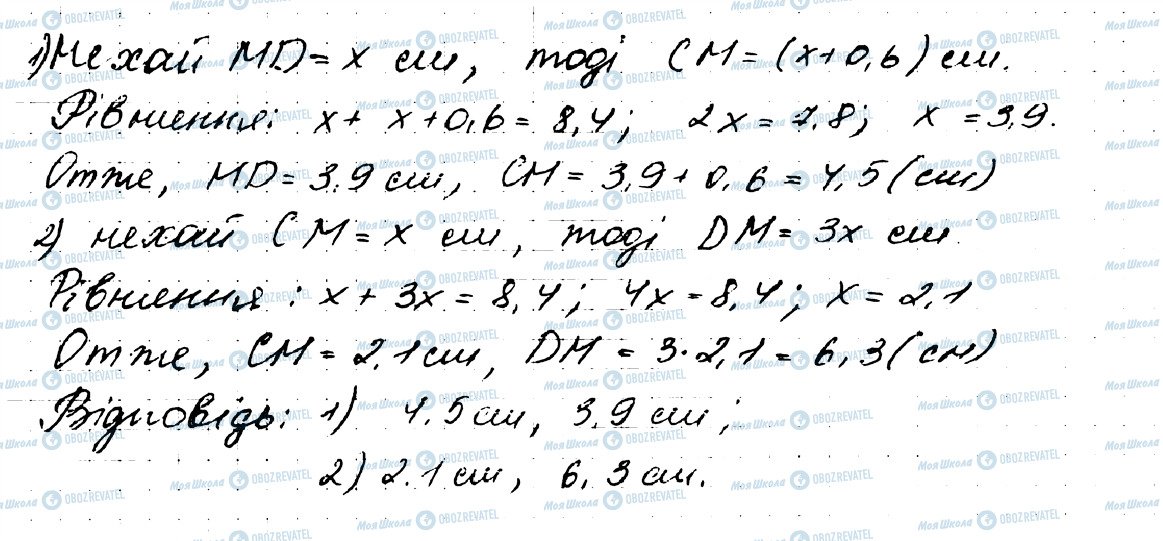 1) Нехай MD = x см, тоді CM = (x+0,6) см.
Рівняння: x + x+0,6 = 8,4; 2x = 7,8; x = 3,9.
Отже, MD = 3,9 см, CM = 3,9 + 0,6 = 4,5 (см)
2) нехай CM = x см, тоді DM = 3x см
Рівняння: x + 3x = 8,4; 4x = 8,4; x = 2,1
Отже, CM = 2,1 см, DM = 3·2,1 = 6,3 (см)
Відповідь: 1) 4,5 см, 3,9 см;
2) 2,1 см, 6,3 см.